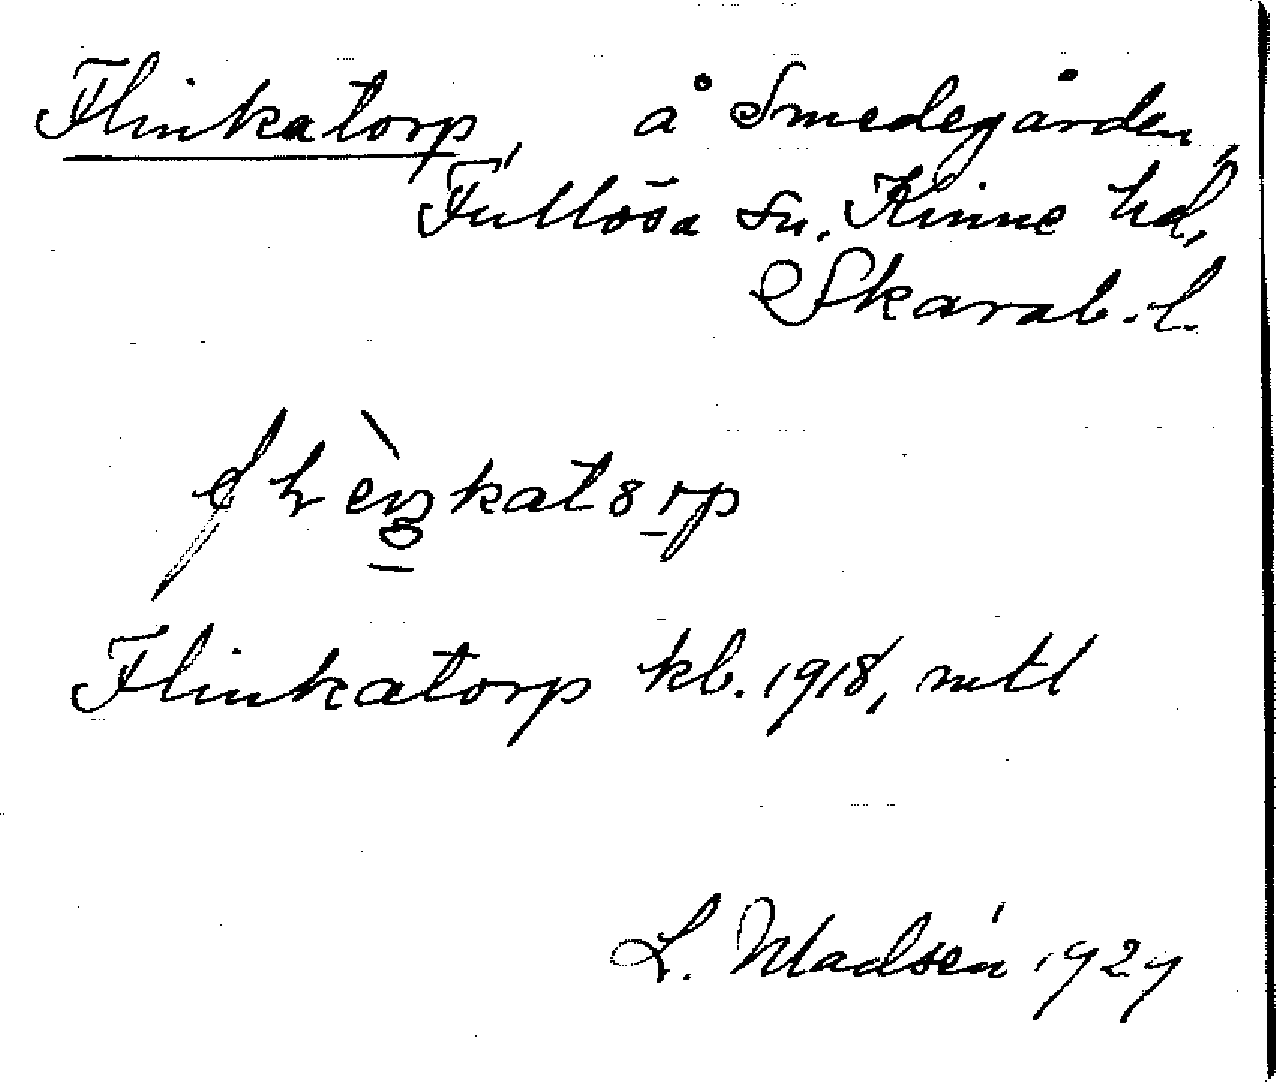 Flinkatorp, å Smedegården,
Fullösa sn. Kinne hd,
Skarab. l.
Flinkatorp kb. 1918, mtl
L. Madsén 1929